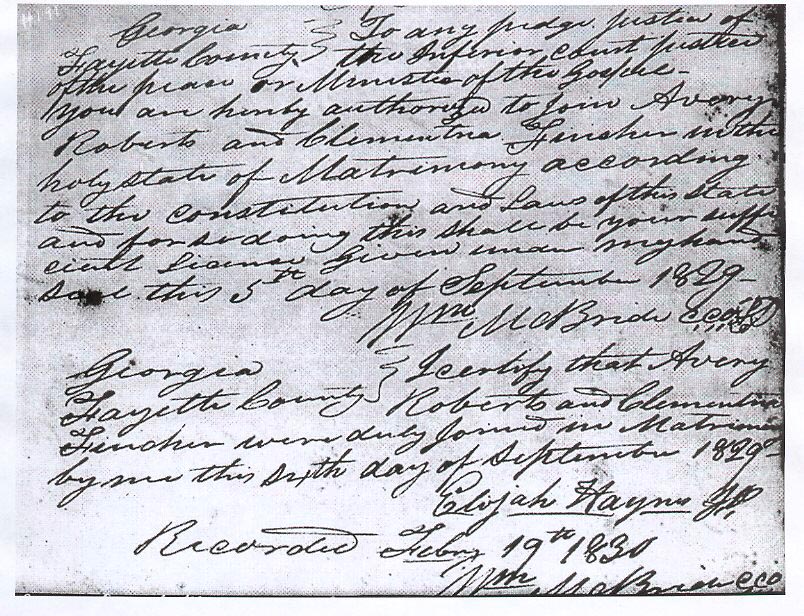 Georgia } To any judge Justice of
Fayette County } the Inferior Court Justice
of the peace or Minister of the Gospel-
You are hereby authorized to Join Avery
Roberts and Clementina Fincher in the
holy state of Matrimony according
to the constitution and Laws of this State
and for so doing this shall be your suffi
cient License Given under my hand
seal this 5th day of September 1829-
Wm McBride
Georgia } I certify that Avery
Fayette County } Roberts and Clementina
Fincher were duly Joined in Matrimo
by me this Sixth day of September 1829-
Elijah Haynes JP
Recorded Febry 19th 1830
Wm McBride cco